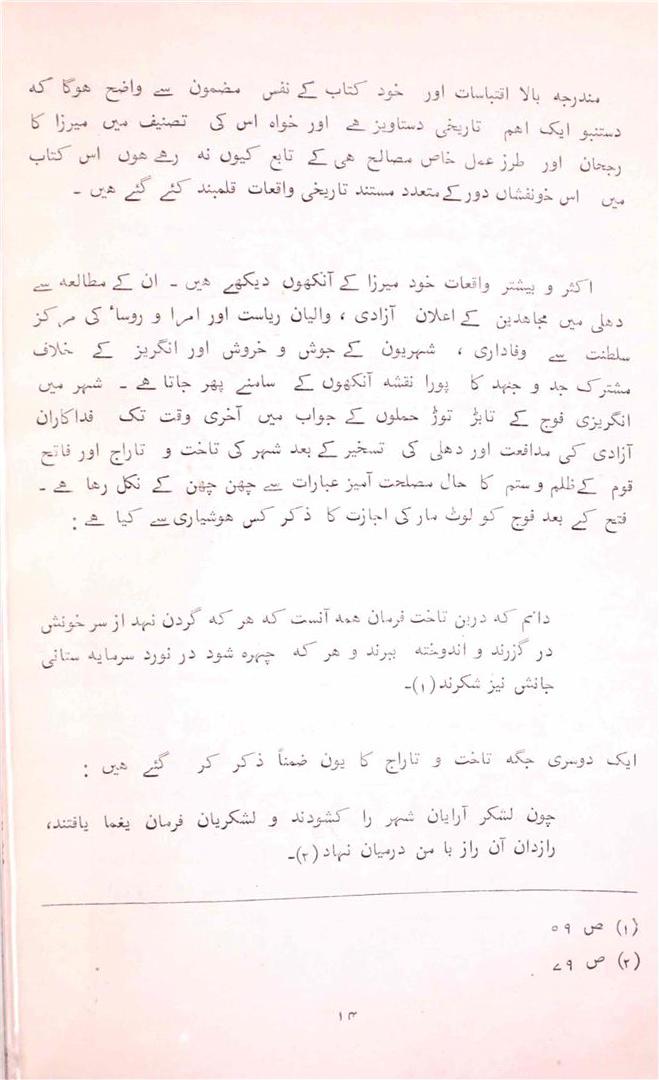 مندرجہ بالا اقتباسات اور خود کتاب کے نفس مضمون سے واضح ھوگا کہ
دستنبو ایک اھم تاریخی دستاویز ھے اور خواہ اس کی تصنیف میں میرزا کا
رجحان اور طرز عمل خاص مصالح ھی کے تابع کیوں نہ رھے ھوں اس کتاب
میں اس خونفشاں دور کے متعدد مستند تاریخی واقعات قلمبند کئے گئے ھیں ۔
اکثر و بیشتر واقعات خود میرزا کے آنکھوں دیکھے ھیں ۔ ان کے مطالعہ سے
دھلی میں مجاھدین کے اعلان آزادی ، والیان ریاست اور امرا و روساٴ کی مرکز
سلطنت سے وفاداری ، شھریون کے جوش و خروش اور انگریز کے خلاف
مشترک جد و جہد کا پورا نقشہ آنکھوں کے سامنے پھر جاتا ھے ۔ شہر میں
انگریزی فوج کے تابڑ توڑ حملوں کے جواب میں آخری وقت تک فداکاران
آزادی کی مدافعت اور دھلی کی تسخیر کے بعد شہر کی تاخت و تاراج اور فاتح
قوم کے ظلم و ستم کا حال مصلحت آمیز عبارات سے چھن چھن کے نکل رھا ھے ۔
فتح کے بعد فوج کو لوٹ مار کی اجازت کا ذکر کس ھوشیاری سے کیا ھے :
دانم کہ درین تاخت فرمان ھمہ آنست کہ ھر کہ گردن نہد از سر خونش
در گزرند و اندوختہ ببرند و ھر کہ چہرہ شود در نورد سرمایہ ستانی
جانش نیز شکرند (۱)۔
ایک دوسری جگہ تاخت و تاراج کا یون ضمناً ذکر کر گئے ھیں :
چون لشکر آرایان شہر را کشودند و لشکریان فرمان یغما یافتند،
رازدان آن راز با من درمیان نہاد (۲)۔
(۱) ص ۵۹
(۲) ص ۷۹
۱۴